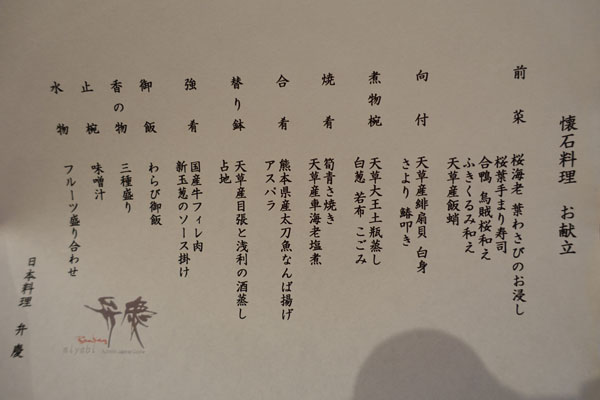 懐石料理 お献立
前菜
桜海老 葉わさびのお浸し
桜葉手まり寿司
合鴨 烏賊桜和え
ふきくるみ和え
天草産飯蛸
向付
天草産緋扇貝 白身
さより 鯵叩き
煮物椀
天草大王土瓶蒸し
白葱 若布 こごみ
焼肴
筍青さ焼き
天草産車海老塩煮
合肴
熊本県産太刀魚なんば揚げ
アスパラ
替り鉢
天草産目張と浅利の酒蒸し
占地
強肴
国産牛フィレ肉
新玉葱のソース掛け
御飯
わらび御飯
香の物
三種盛り
止椀
味噌汁
水物
フルーツ盛り合わせ
日本料理 弁慶
弁慶
miyabi